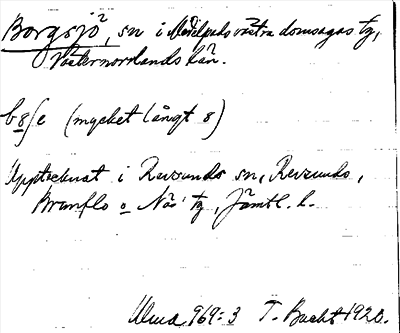 Borgsjö, sn i Medelpads västra domsagas tg,
Västernorrlands län.
b8ʃe (mycket långt 8)
Upptecknat i Revsunds sn, Revsunds,
Brunflo o Näs tg, Jämtl. l.
Ulma 969:3 T. Bucht 1920.